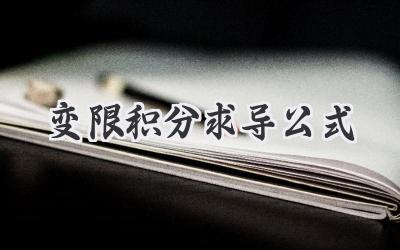 变限积分求导公式